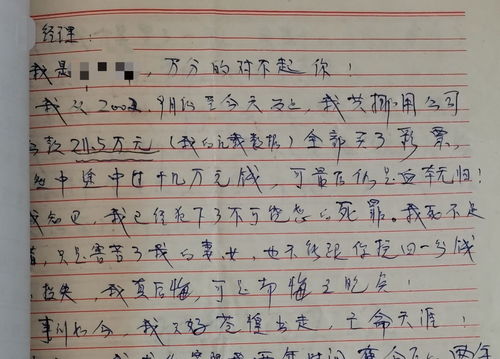 经理:
我是 ,万分的对不起你!
我从200 年9月份至今天为止,我共挪用公司
公款211.5万元(我的记载数据)全部买了彩票,
中途中过十几万元钱,可最后仍是血本无归!
我知道,我已经犯下了不可饶恕的死罪。我死不足
惜,只是害苦了我的妻女,也不能跟你挽回一分钱
损失,我真后悔,可是却悔之晚矣!
事到如今,我只好苍惶出走,亡命天涯!